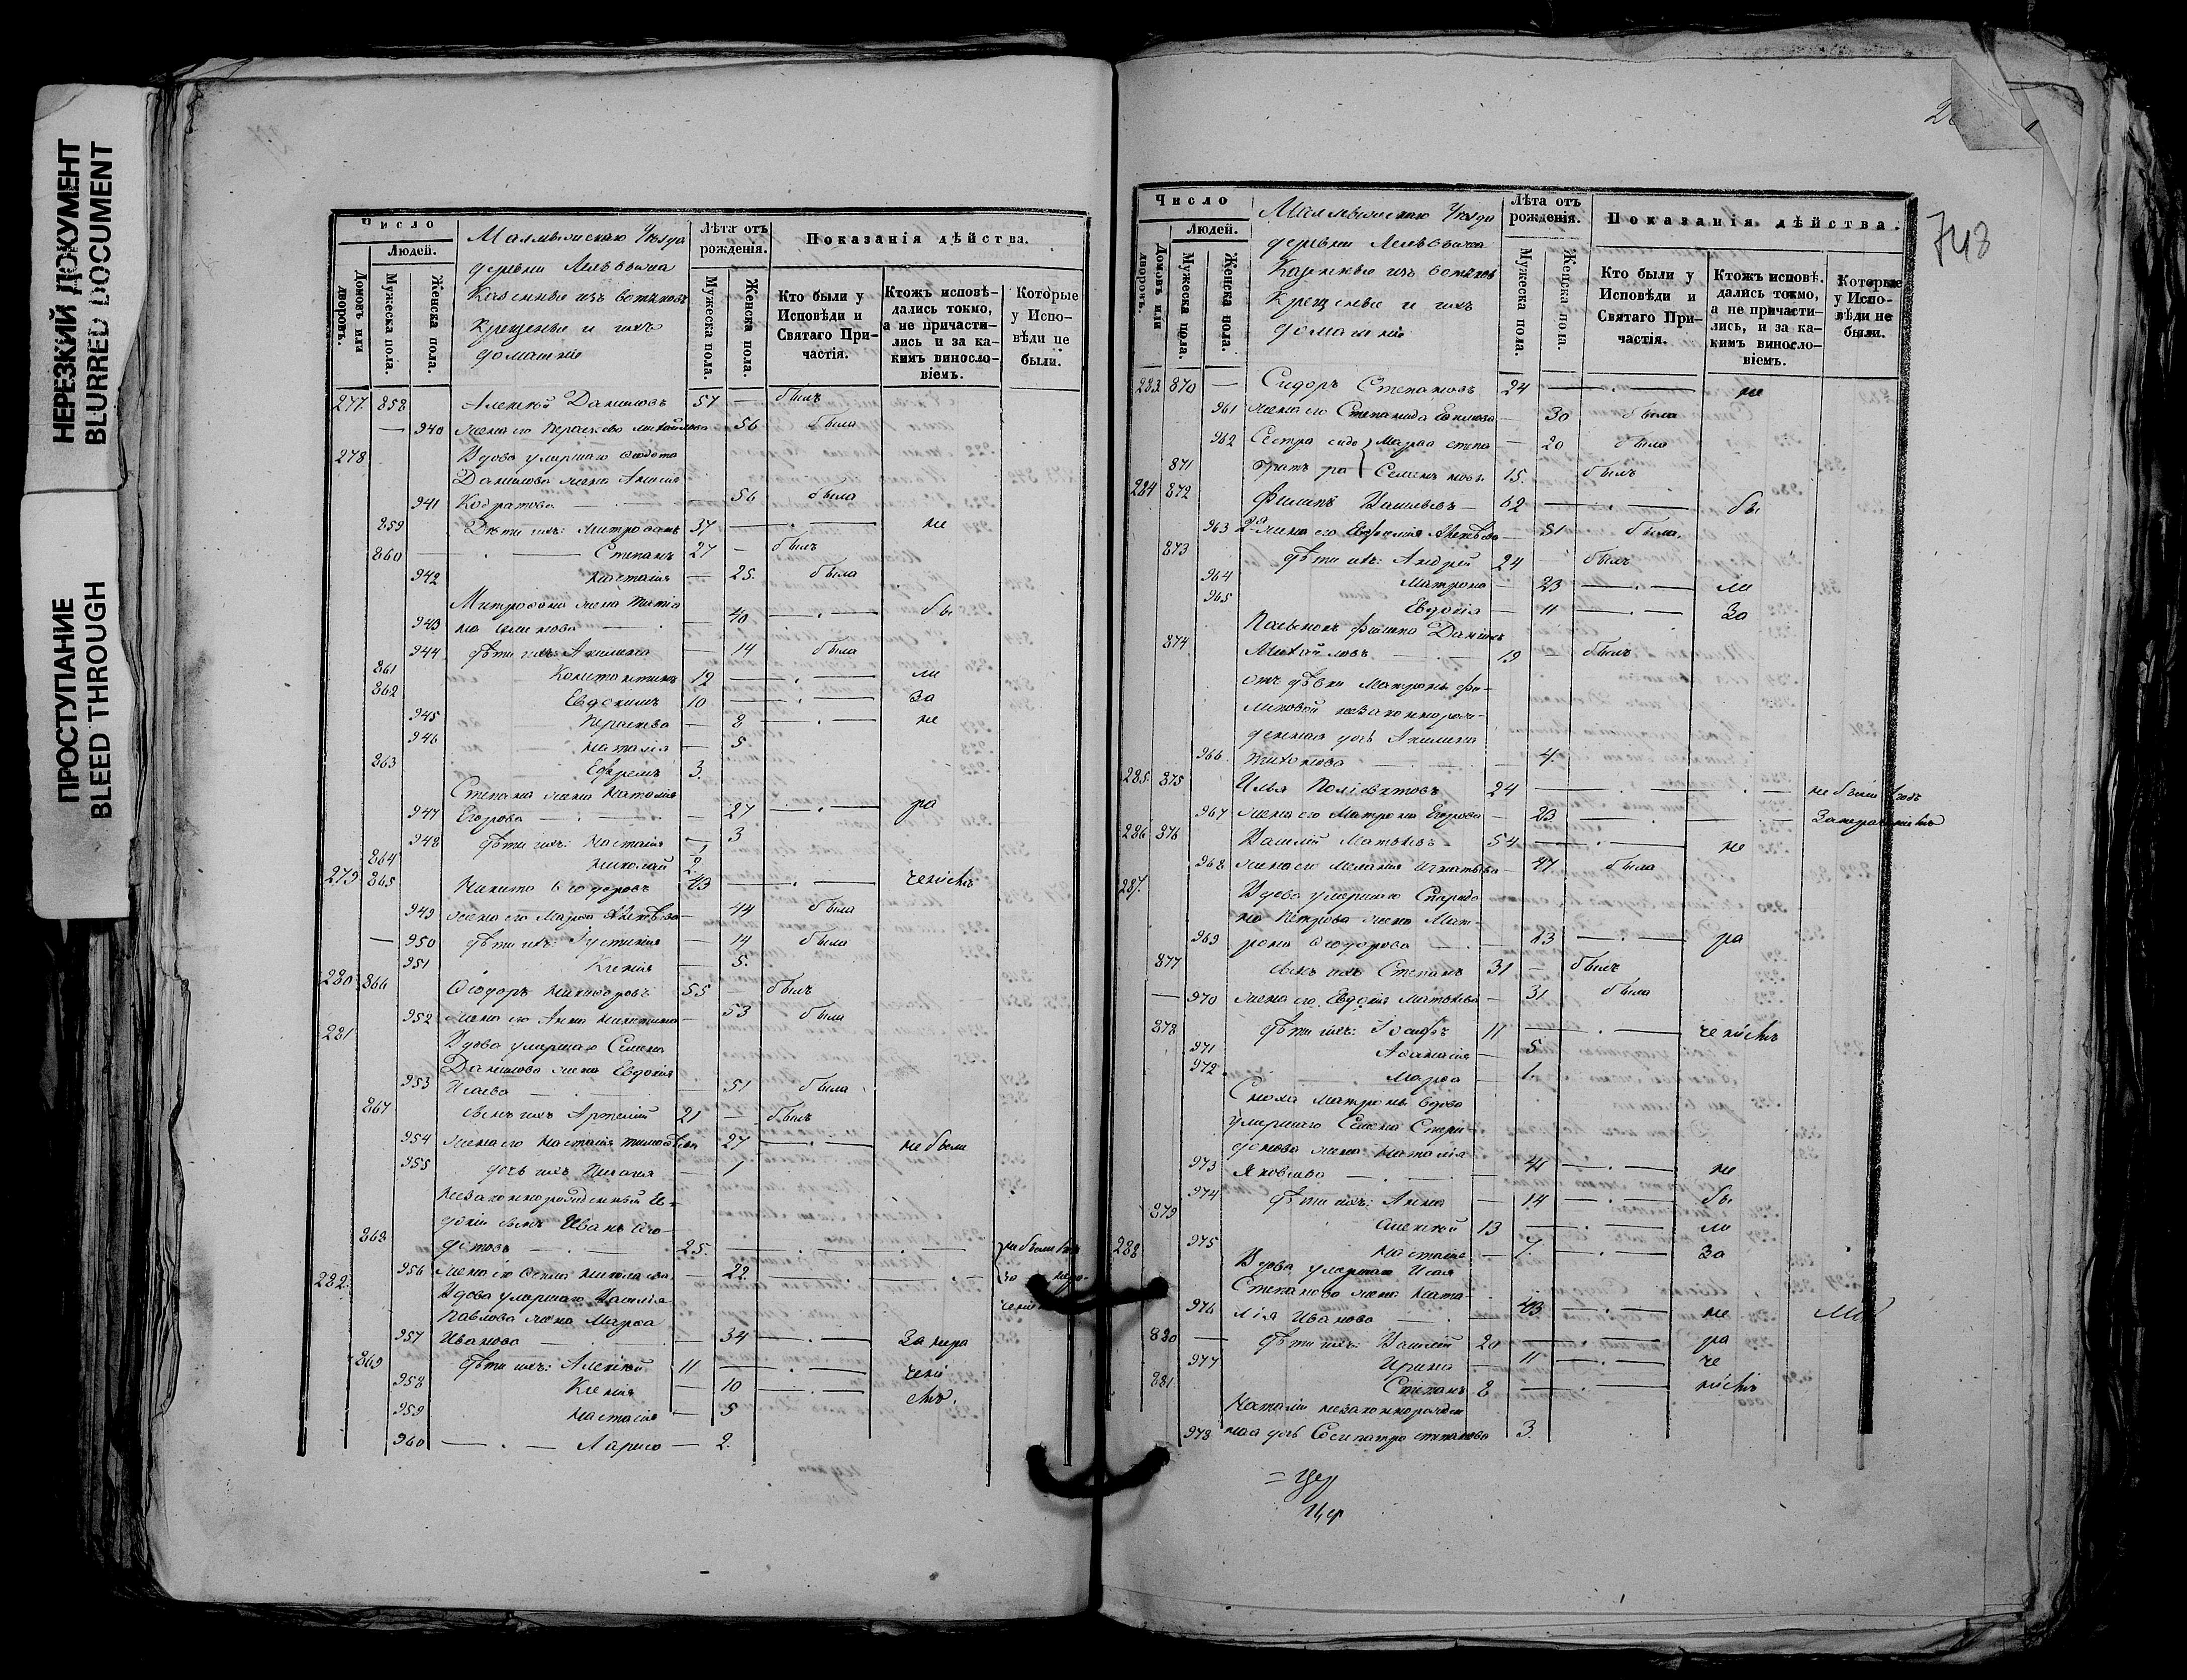 НЕРЕЗКИЙ ДОКУМЕНТ
BLURRED DOCUMENT
ПРОСТУПАНИЕ
BLEED THROUGH
Число
Людей.
Домовъ или дворовъ.
Мужеска пола.
Женска пола.
Малмыжскаго Уѣзда
деревни
Казенные изъ вотяковъ
Крещеные и ихъ
домашніе
Лѣта отъ рожденія.
Мужеска пола.
Женска пола.
Показанія дѣйства.
Кто были у Исповѣди и Святаго Причастія.
Ктожъ исповѣдались токмо, а не причастились и за какимъ винословіемъ.
Которые у Исповѣди не были.
277. 858 Алексѣй Даниловъ 57 — былъ
— 940 жена его Парасковья Михайлова 56 была
278 Вдова умершаго Ѳедота
Данилова жена Анисія
941 Кодратова — 56 была
859 Дѣти ихъ: Митрофанъ 37 — не
860 — Степанъ 27 — былъ
942 Настасія — 25. была
Митрофана жена Татіа
943 на — 40 — бы
944 дѣти ихъ: Акилина — 14 была
861 Констонтинъ 12 — ли
862 Евдокимъ 10 — За
945 Парасковья — 8 — не
946 Наталія — 5.
863 Ефремъ 3.
Степана жена Наталія
947 Егорова — 27 — ра
948 дѣти ихъ: Настасія — 3
864 Николай 1/2.
279 865 Никита Ѳеодоровъ 43 — ченіемъ
949 жена его Марѳа — 44 была
— 950 дѣти ихъ: Іустинія — 14 была
951 Ксенія — 5.
280 866 Ѳеодоръ Никифоровъ 55 — былъ
952 жена его Анна Никитина — 53 была
281 Вдова умершаго Семена
Данилова жена Евдокія
953 Исаева — 51 была
867 сынъ ихъ Артемій 21 — былъ
954 жена его Настасія Тимоѳѣева 27 — не были
955 дочь ихъ Пелагія — 1
незаконнорожденный Ев-
докіи сынъ Иванъ Ѳео-
868 дотовъ — 25. — не были
956 жена его Ѳекла Николаева — 22 — За
282. Вдова умершаго Василія
Павлова жена Марѳа
957 Иванова — 34 — За нера
869 дѣти ихъ: Алексѣй 11 — чені
958 Ксенія — 10 — емъ.
959 Настасія — 5
960 — Лариса — 2.
748
Число
Людей.
Домовъ или дворовъ.
Мужеска пола.
Женска пола.
Малмыжскаго Уѣзда
деревни
Казенные изъ вотяковъ
Крещеные и ихъ
домашніе
Лѣта отъ рожденія.
Мужеска пола.
Женска пола.
Показанія дѣйства.
Кто были у Исповѣди и Святаго Причастія.
Ктожъ исповѣ. дались токмо, а не причастились, и за какимъ винословіемъ.
Которые у Исповѣди не были.
283 870 — Сидоръ Степановъ 24 — не
961 жена его Степанида — 30 была
962 Сестра сидо Марѳа степа — 20 была
871 братъ ра Семенъ новы 15. былъ
284 872 Филипъ Васильевъ — 62 — бы
963 2я жена его Евфросинія — 51 была.
873 дѣти ихъ: Андрей 24 — былъ
964 Матрона — 23 — ли
965 Евдокія — 11 — За
Филипа Данилъ
874 Михайловъ — 19 — былъ
отъ дѣвки Матроны Фи-
липовой незаконнорож-
денная дочь Акилина
966 Тихонова — 4.
285. 875 Илья Поліевктовъ 24 — не были
967 жена его Матрона Егорова — 23 —
286 876 Василій Матвѣевъ — 54 — не
968 жена его Меланія Игнатьева — 47 была
287. Вдова умершаго Спиридо
на Петрова жена Мат-
969 рона Ѳеодорова — — ра
877 сынъ ихъ Степанъ 31 — былъ
— 970 жена его Евдокія Матвѣева — 31 была
878 дѣти ихъ: Іосифъ 11 — ченіемъ
971 Аѳанасія — 5
972 Марѳа — 1.
Сноха Матроны вдова
умершаго Семена Спири-
донова жена Наталія
973 Яковлева — — не
974 дѣти ихъ: Анна — 14 — бы
879 Алексѣй 13 — ли
975 Настасія — 7. — За
288 Вдова умершаго Исая
Степанова жена Ната-
976 лія Иванова — 43 — не
880 — дѣти ихъ: Василій 20 — ра
977 Ирина — 11 — че
881 Степанъ 8 — ніемъ
Наталіи незаконнорожден
978 ная дочь Сосипатра степанова 3.